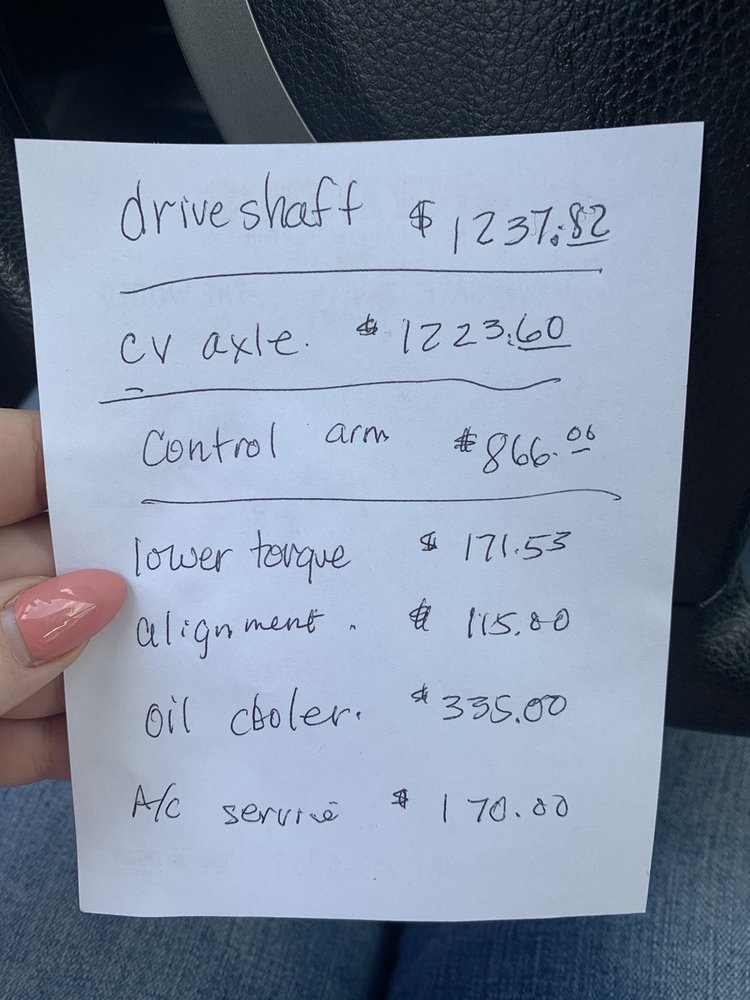 driveshaft $1237.82
cv axle. $1223.60
Control arm $866.06
lower torque $171.53
alignment. $115.00
oil cooler. $335.00
A/c service $170.00